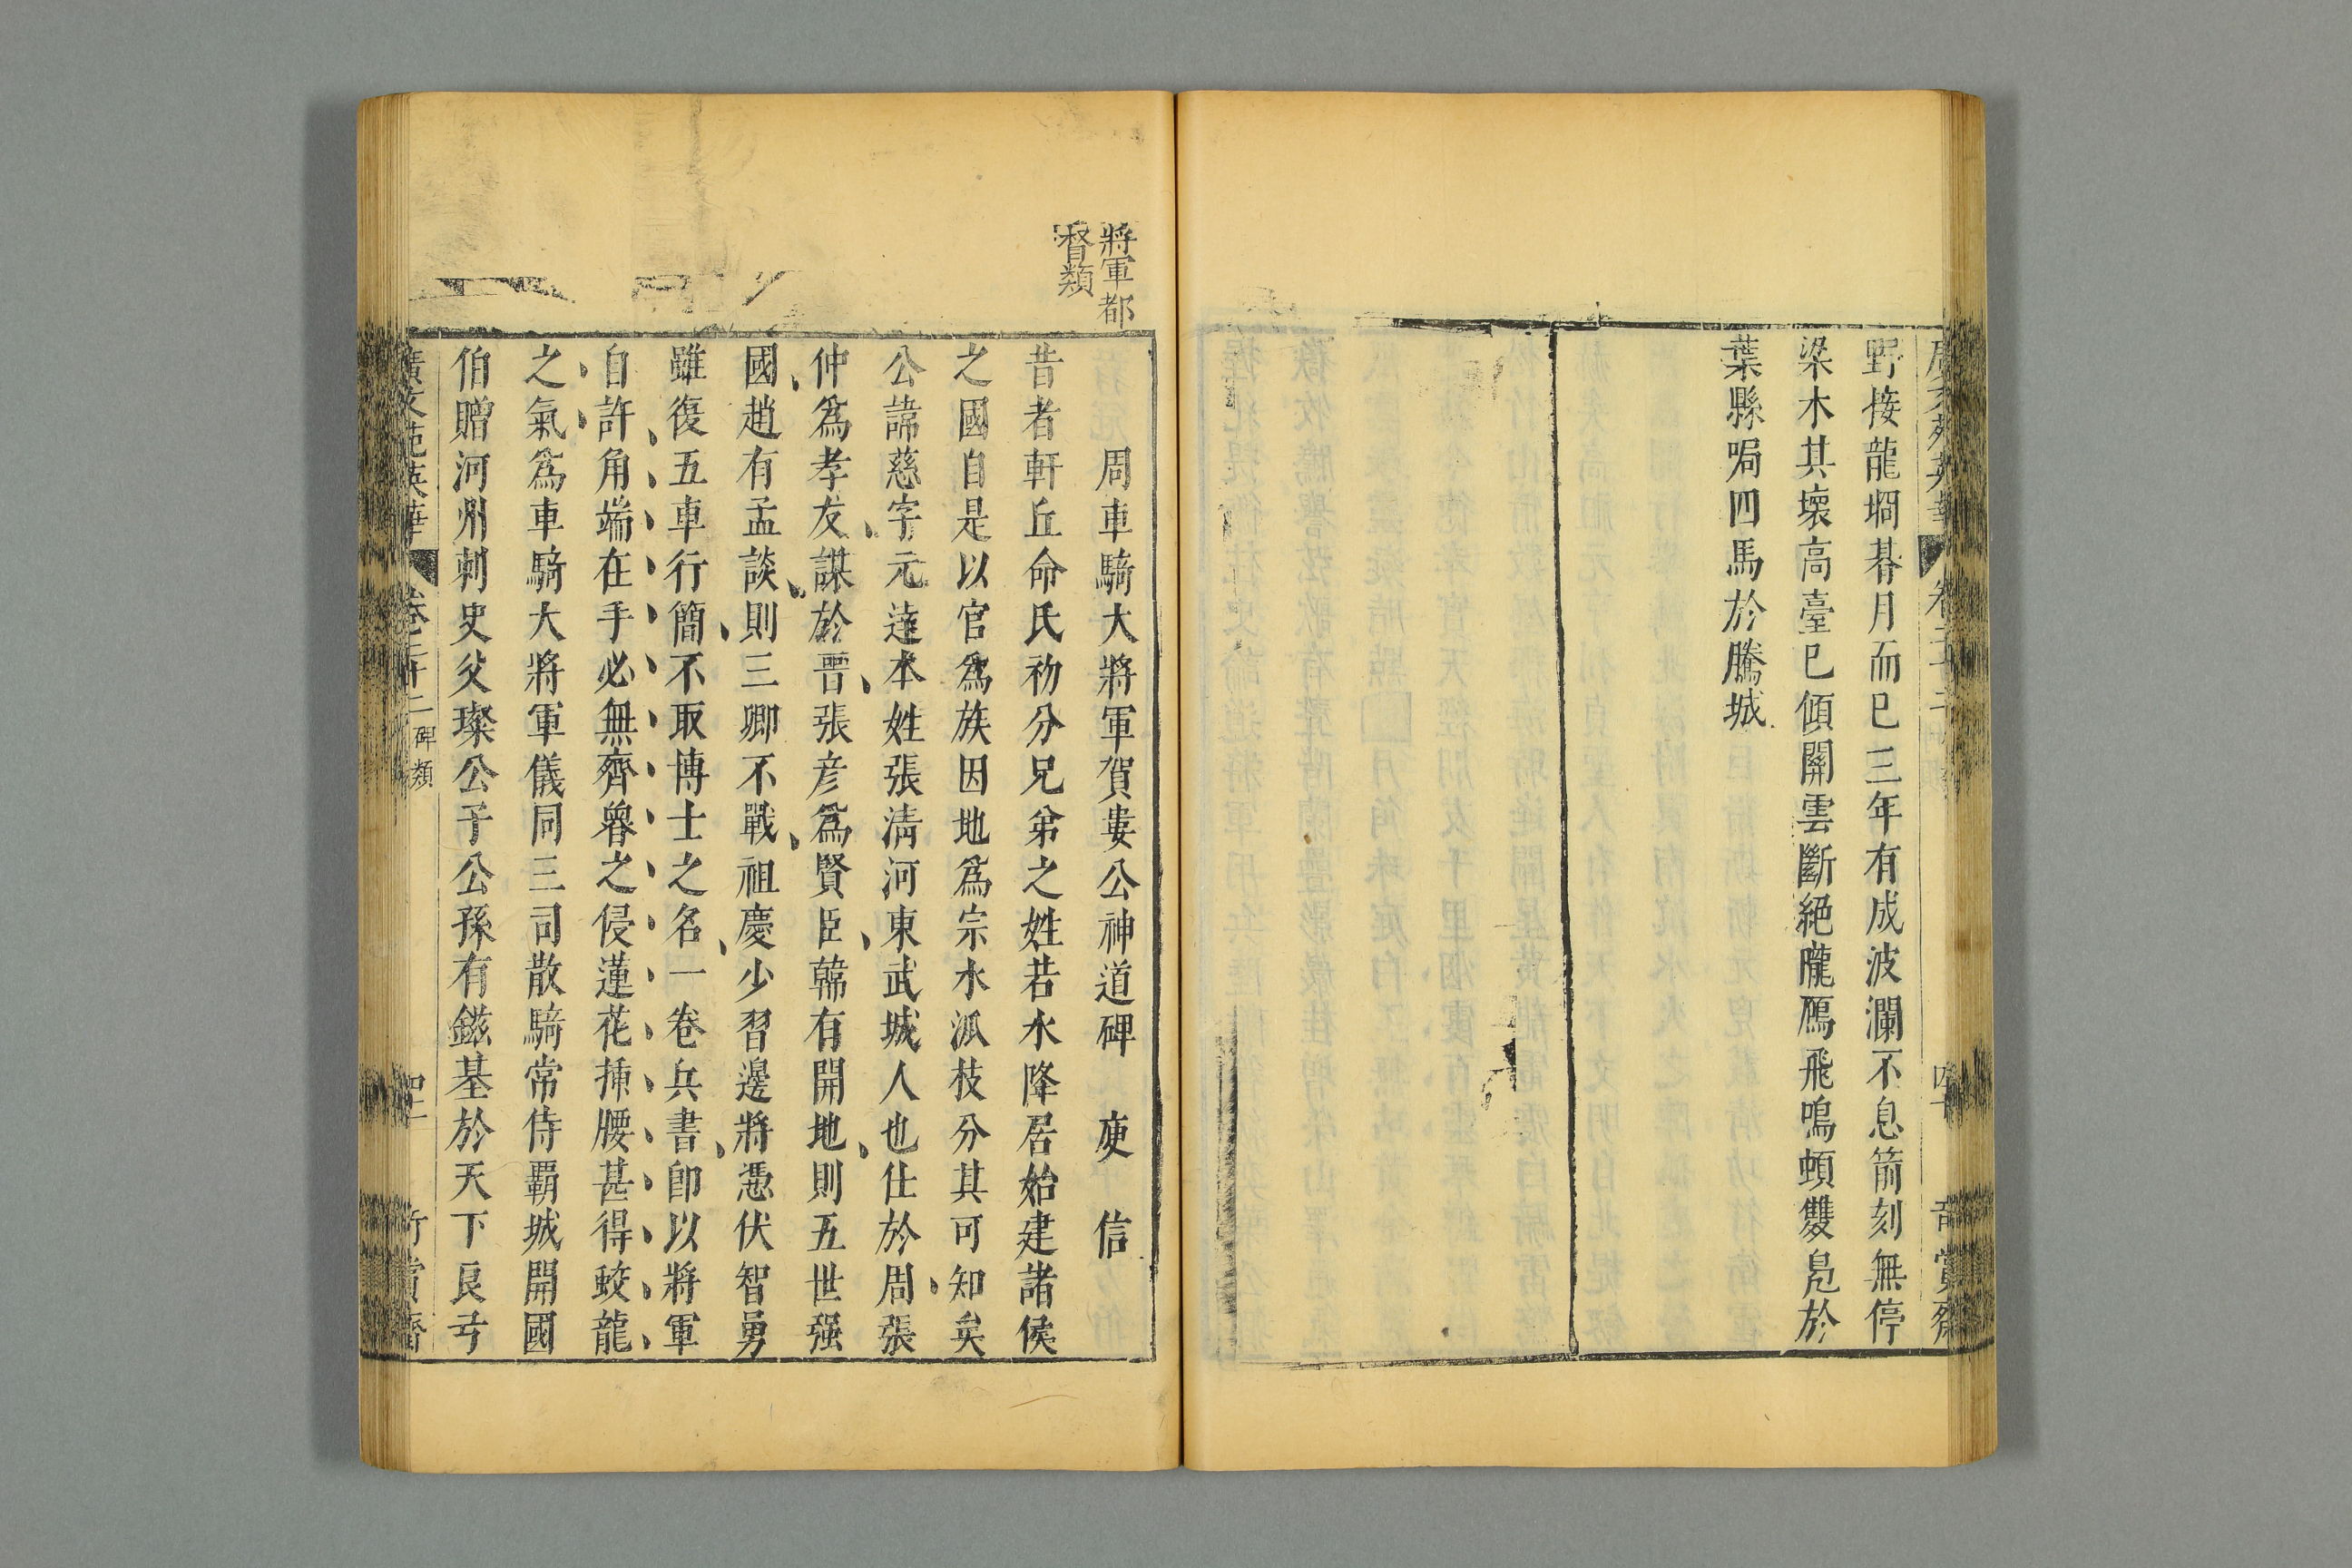 野接龍堈朞月而已三年有成波瀾不息箭刻無停
梁木其壞高臺已傾關雲斷絕隴鴈飛鳴頓雙鳧於
葉縣跼四馬於騰城
將軍都
督類
周車騎大將軍賀婁公神道碑 庾信
昔者軒丘命氏初分兄弟之姓若水降居始建諸侯
之國自是以官爲族因地爲宗水派枝分其可知矣
公諱慈字元達本姓張淸河東武城人也仕於周張
仲爲孝友謀於晉張彦爲賢臣韓有開地則五世强
國趙有孟談則三卿不戰祖慶少習邊將憑伏智勇
雖復五車行簡不取博士之名一卷兵書卽以將軍
自許角端在手必無齊魯之侵蓮花揷腰甚得蛟龍
之氣爲車騎大將軍儀同三司散騎常侍覇城開國
伯贈河州刺史父璨公子公孫有鎡基於天下良弓
廣文苑英華 卷二十二 碑類